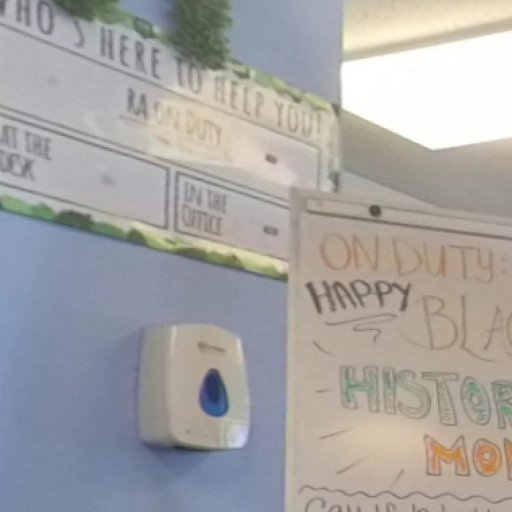 WHO'S HERE TO HELP YOU!
RA ON DUTY
AT THE
DESK
IN THE
OFFICE
ON DUTY:
HAPPY
BLAC
HISTOR
MON